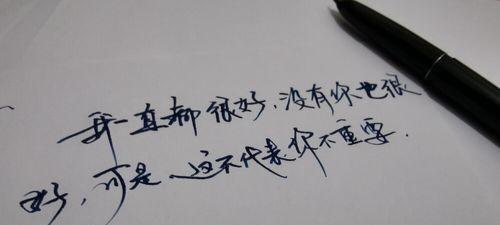 我一直都很好，没有你也很
好，可是这不代表你不重要.